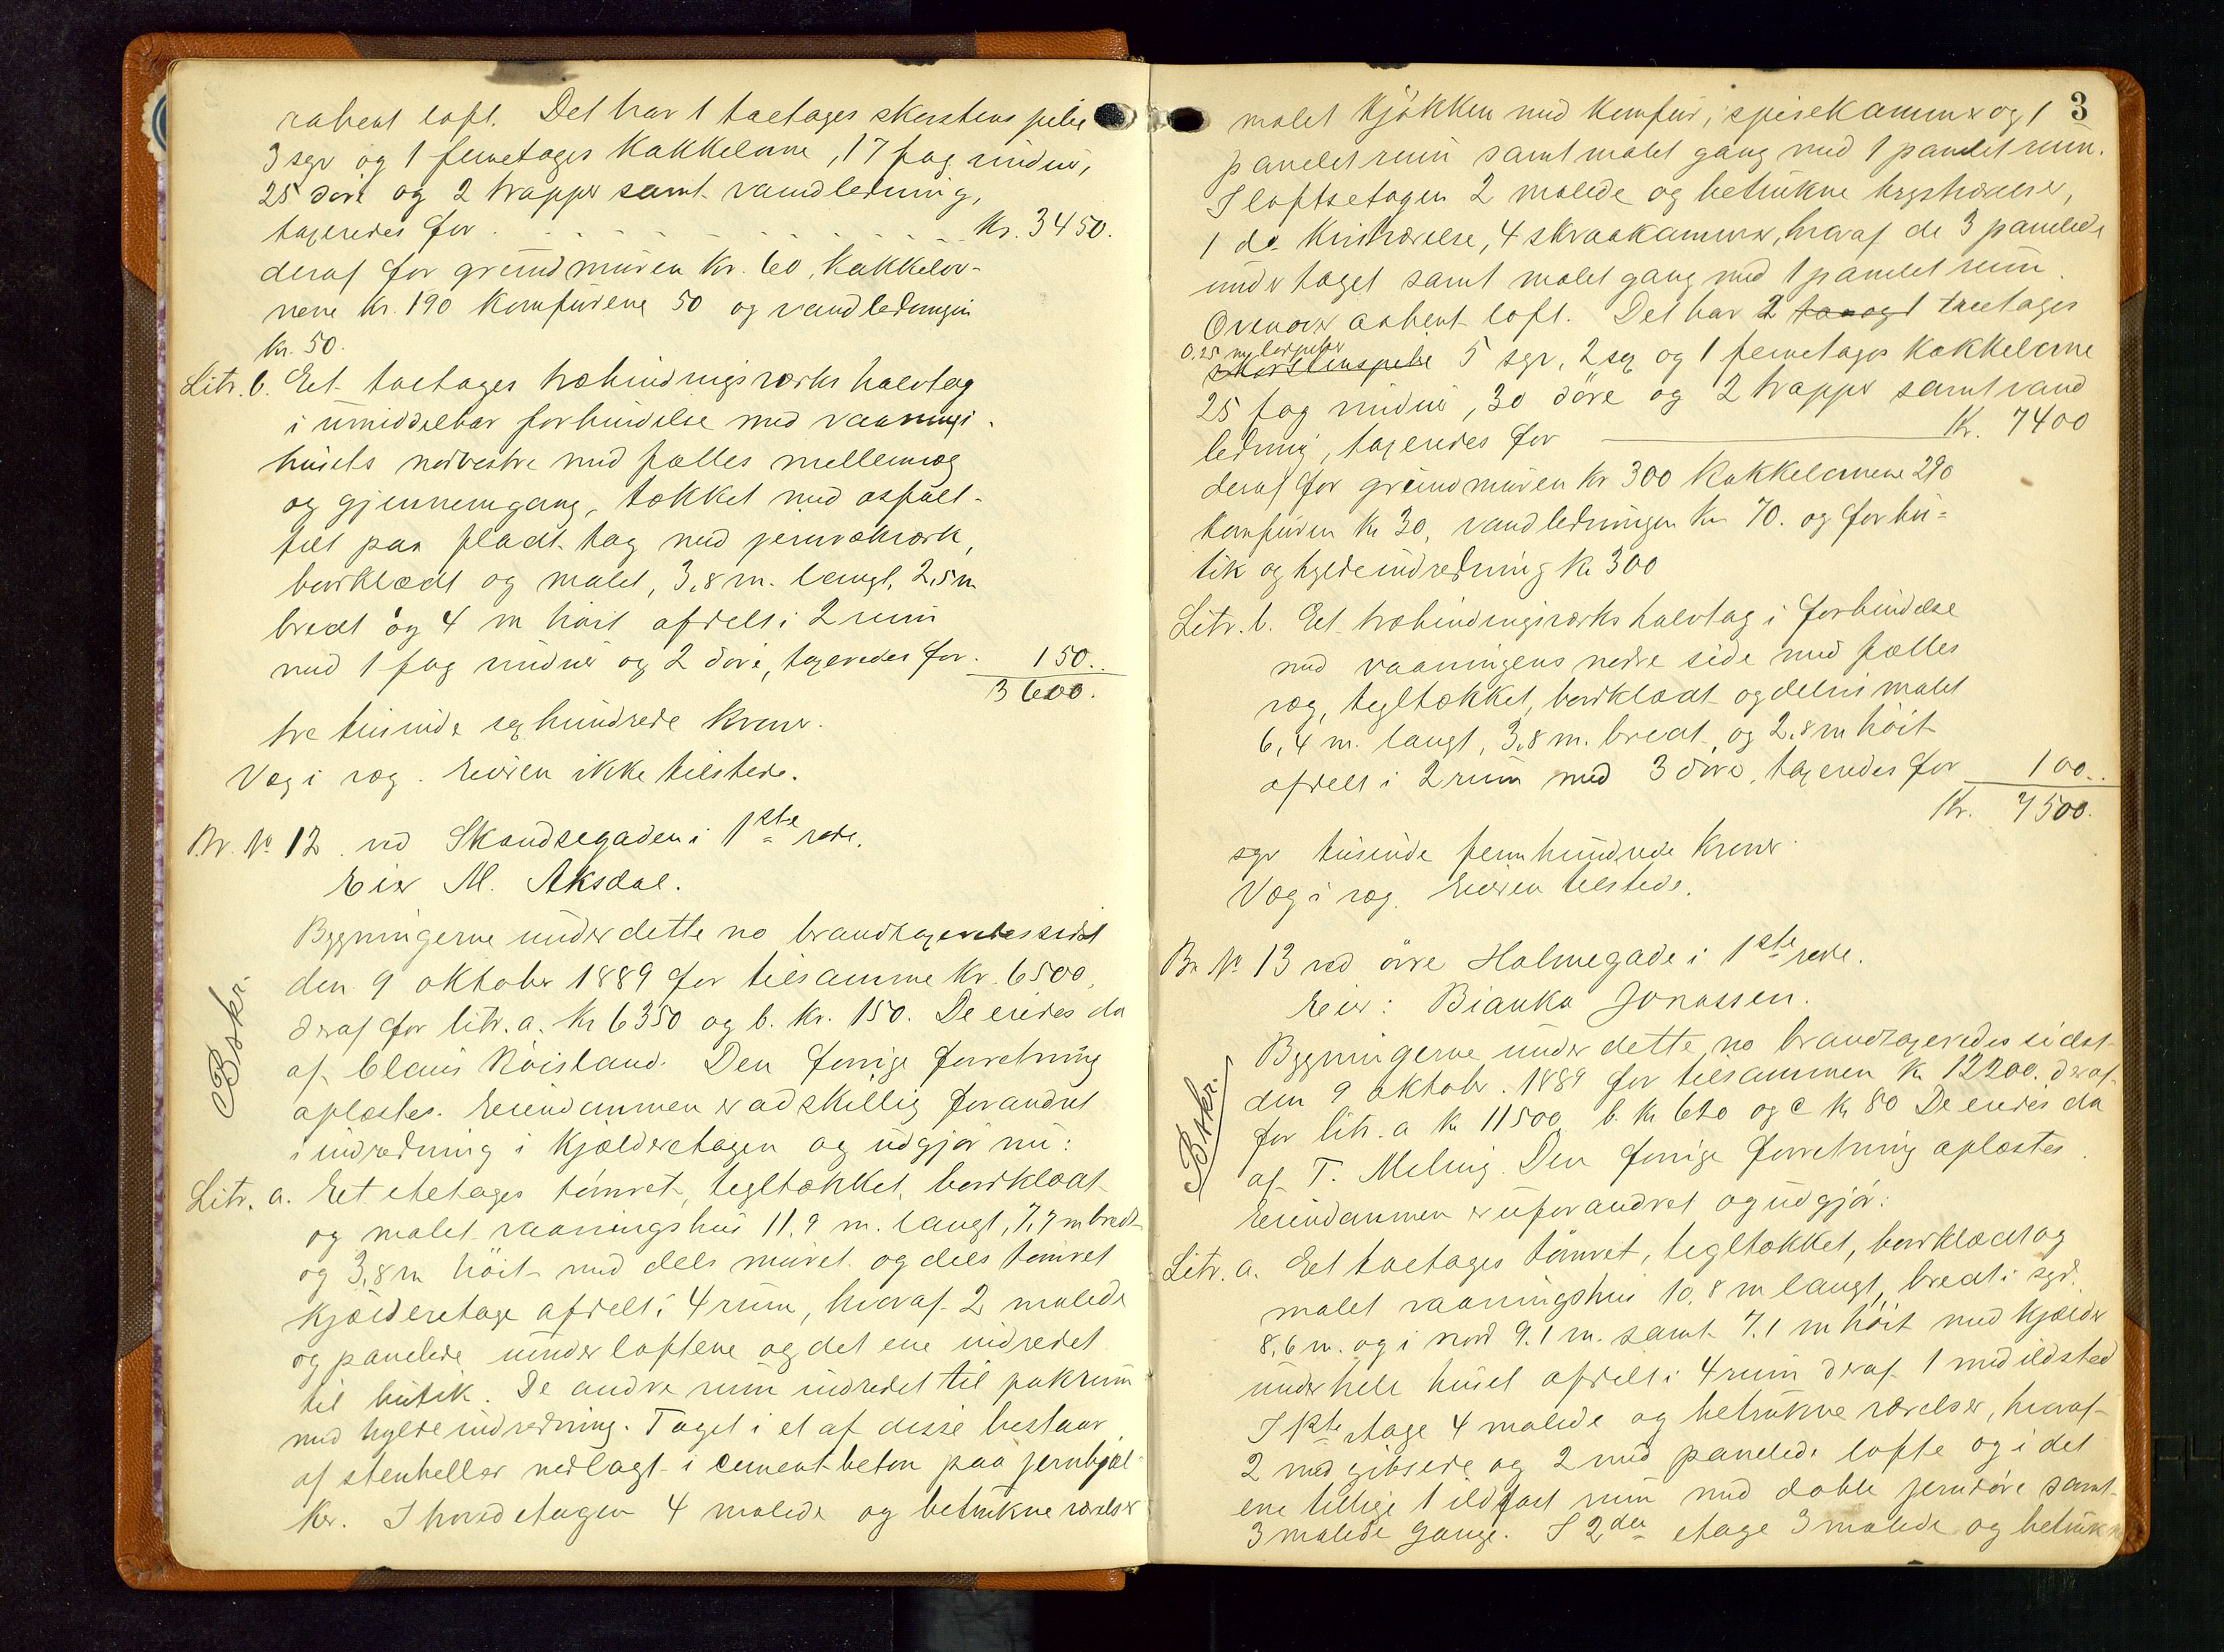 aabent loft. Det har 1 toetages skorstenspibe
3 sgr og 1 femetages Kakkelovne, 17 fag vinduer,
25 döre og 2 trapper samt vandledning,
taxeredes for . . . . . . . . . . Kr. 3450.
deraf for grundmuren Kr. 60, Kakkelov-
nene Kr. 190 Komfurene 50 og vandledningen
Kr. 50.
Litr. b. Eet toetages træbindingsværks halvtag
i umiddelbar forbindelse med vaanings-
husets nordvestre med fælles mellemvæg
og gjennemgang, tækket med asfalt-
filt paa fladt tag med jernrækværk,
bordklædt og malet, 3,8 m. langt, 2,5 m
bredt og 4 m höit afdelt i 2 rum
med 1 fag vinduer og 2 döre, taxeredes for. 150..
3600.
tre tusinde sex hundrede Kroner.
Væg i væg. Eieren ikke tilstede.
Br. No 12 ved Skandsegaden i 1ste rode.
Eier M. Aksdal.
Bskr.
Bygningerne under dette no brandtaxeredes sidst
den 9 oktober 1889 for tilsamme Kr. 6500,
deraf for litr. a. Kr 6350 og b. Kr. 150. De eiedes da
af Claus Röisland. Den forrige forretning
oplæstes. Eiendommen er adskillig forandret
i indredning i Kjælderetagen og udgjör nu:
Litr. a. Eet etetages tömret, tegltækket, bordklædt
og malet vaaningshus 11,9 m. langt, 7,7 m bredt
og 3,8 m höit med dels muret og dels tömret
Kjælderetage afdelt i 4 rum, hvoraf 2 malede
og panelede under loftene og det ene indredet
til butik. De andre rum indredet til pakrum
med hyldeindredning. Taget i et af disse bestaar
af stenheller nedlagt i cementbeton paa jernbjæl-
ker. I hovedetagen 4 malede og betrukne værelser
3
malet Kjökken med Komfur, spisekammer og 1
panelet rum samt malet gang med 1 panelet rum.
I loftsetagen 2 malede og betrukne brystværelser,
1 do Kvistværelse, 4 skraakammer, hvoraf de 3 panelede
under taget samt malet gang med 1 panelet rum.
Ovenover aabent loft. Det har 2 to og 1 treetages
skorstenspibe 5 sgr, 2 sex og 1 femetages Kakkelovne
25 fag vinduer, 30 döre og 2 trapper samt vand
ledning, taxeredes for Kr. 7400
deraf for grundmuren Kr 300 Kakkelovnene 290
komfuren Kr 30, vandledningen Kr 70. og for bu-
tik og hyldeindredning Kr 300
Litr. b. Eet træbindingsværks halvtag i forbindelse
med vaaningens nordre side med fælles
væg, tegltækket, bordklædt og delvis malet
6,4 m. langt, 3,8 m. bredt, og 2,8 m höit
afdelt i 2 rum med 3 döre, taxeredes for 100..
Kr. 7500.
syv tusinde femhundrede Kroner.
Væg i væg. Eieren tilstede.
Br No 13 ved övre Holmegade i 1ste rode.
Eier: Bianka Jonassen.
Bskr.
Bygningerne under dette no brandtaxeredes sidst
den 9 oktober. 1889 for tilsammen Kr 12200. deraf
for litr. a Kr 11500 b. Kr 620 og c Kr 80 De eiedes da
af T. Meling. Den forrige forretning oplæstes.
Eiendommen er uforandret og udgjör:
Litr. a. Eet toetages tömret, tegltækket, bordklædt og
malet vaaningshus 10,8 m langt, bredt i syd.
8,6 m. og i nord 9.1 m. samt 7.1 m höit med Kjælder
under hele huset afdelt i 4 rum deraf 1 med ildsted
I 1ste etage 4 malede og betrukne værelser, hvoraf
2 med gibsede og 2 med panelede lofte og i det
ene tillige 1 ildfast rum med doble jerndöre samt
3 malede gange. I 2den etage 3 malede og betrukn